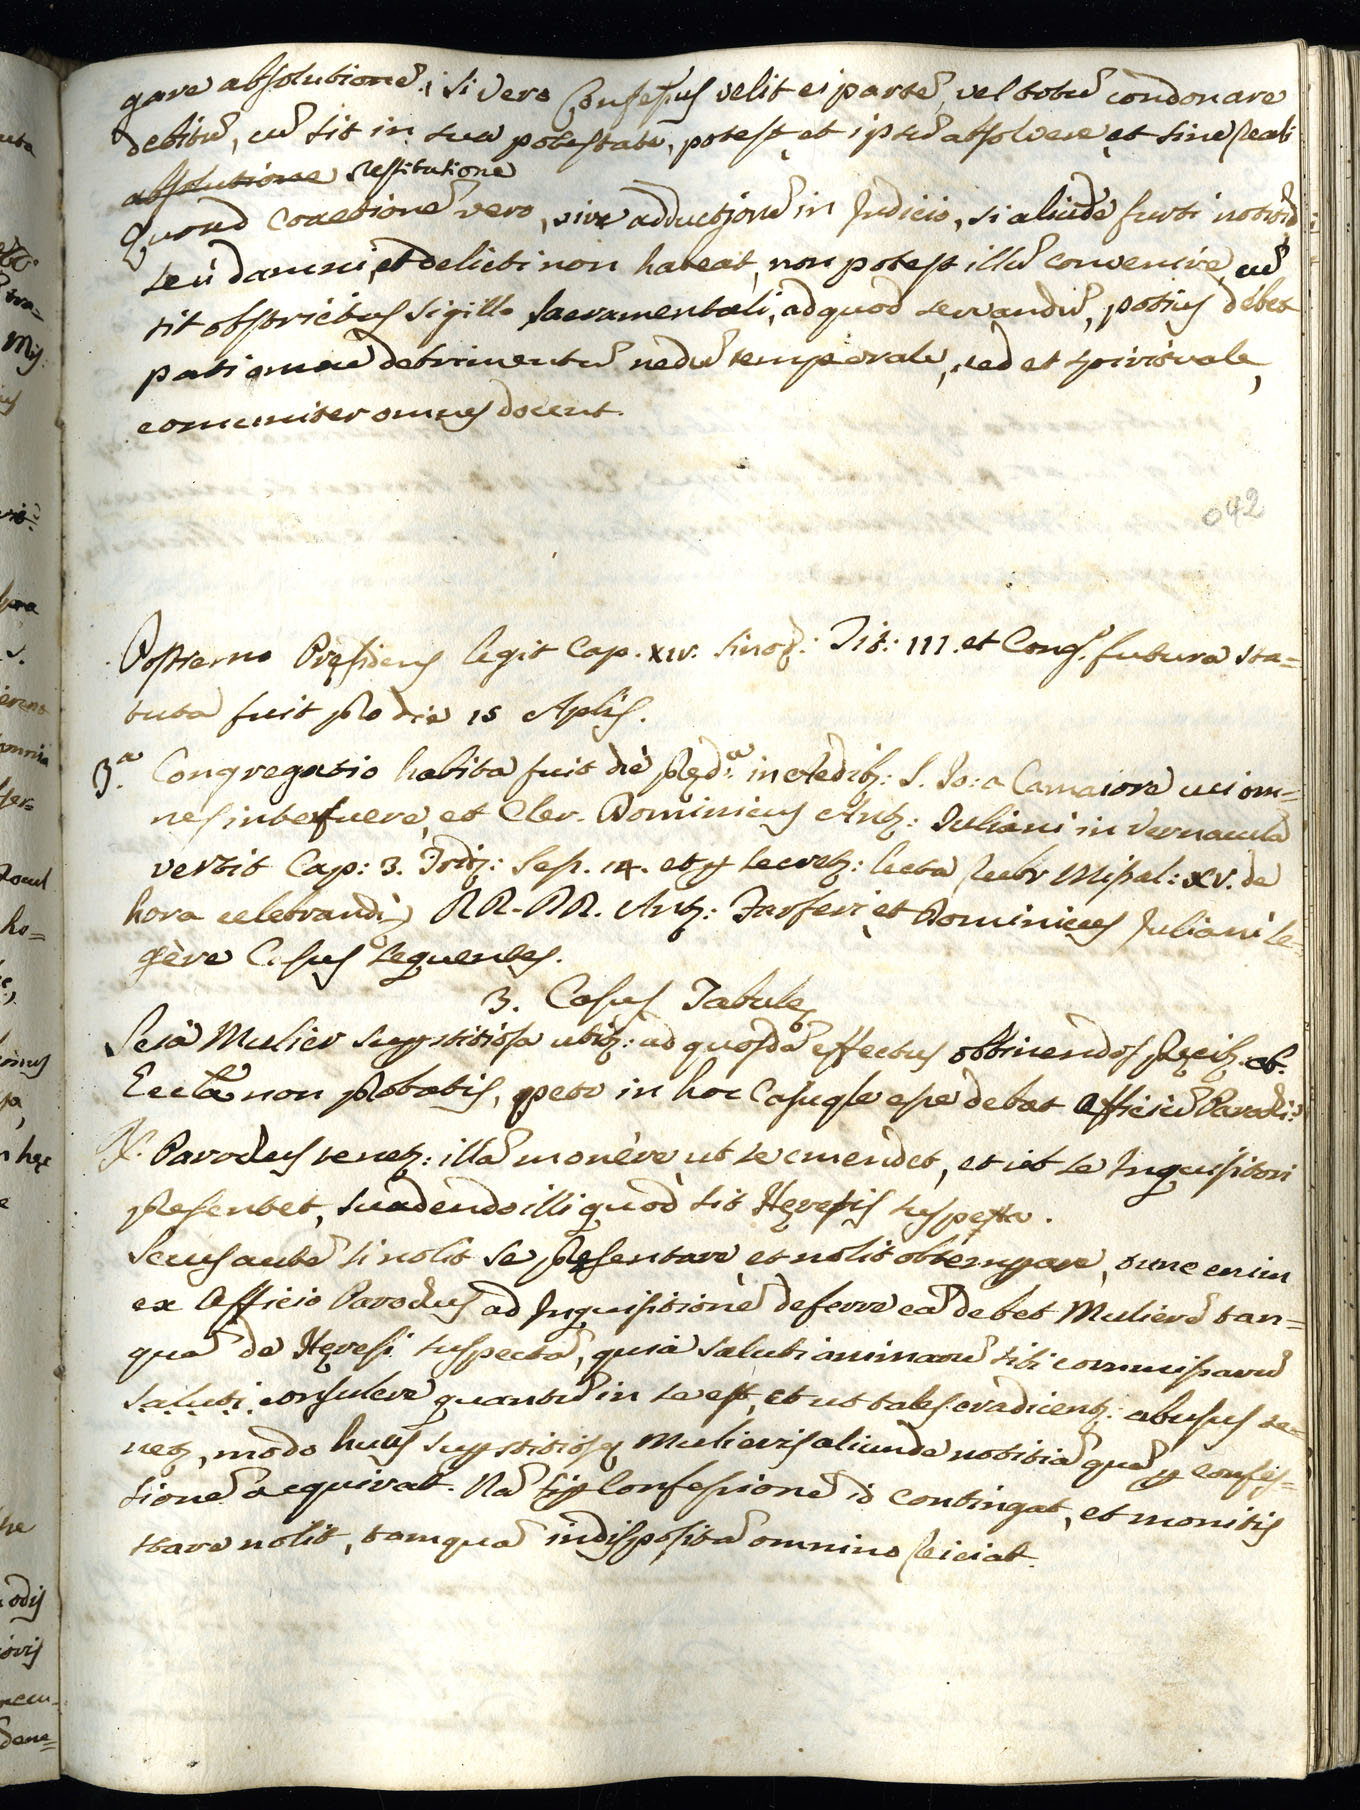 gare absolutionẽ; si vero Confessus velit ei partẽ, vel totũ condonare
debitũ, cũ sit in sua potestate, potest et ipsũ absolvere et sine reali
absolutione restitutione
Quoad coactionẽ vero, sive adductionẽ in Judicio, si aliunde furti notitiã
seu damni, et delicti non habeat, non potest illũ convenire, cũ
sit obstrictus sigillo sacramentali, ad quod servandũ, potius debet
pati omne detrimentũ nedũ temporale, sed et spirituale,
comuniter omnes docent.
042
Postremo Pręsidens legit Cap. XIV. Sinod: Tit: III. et Cong. futura sta=
tuta fuit pro die 15 Aplis.
3.ª Congregatio habita fuit die pręd.ª in Aedib: S. Jo: a Camaiore cui om=
nes interfuere, et Cler. Dominicus Ant: Juliani in vernacula
vertit Cap: 3. Trid: Sess. 14. et p secret: lecta Rubr Missal: XV. de
hora celebrandi, RR. PP. Ant: Farseri et Dominicus Juliani le=
gère Casus sequentes.
3. Casus Tabulę
Seia Mulier supstitiosa utit: ad quosdã effectus obtinendos pręcib. ab
Ecclã non probatis, peto in hoc casu qle esse debet officiũ Parochi?
R. Parochus tenet: illã monère ut se emendet, et ut se Inquisitori
presentet, suadendo illi quod sit Hęresis suspecta.
Secus autẽ si nolit se presentare et nolit obtemperare, tunc enim
ex Officio Parochus ad Inquisitionẽ deferre eã debet Mulierẽ tan=
quã de Hęresi suspectã, quia saluti animarũ sibi commissarũ
saluti consulere quantũ in se est, et ut tales eradicent: abusus te=
net, modo huius supstitiosę Mulieris aliunde notitiã quã p confes=
sionẽ acquirat. Nã si p Confessionẽ id contingat, et monitis
stare nolit, tamquã indispositã omnino reiciat.